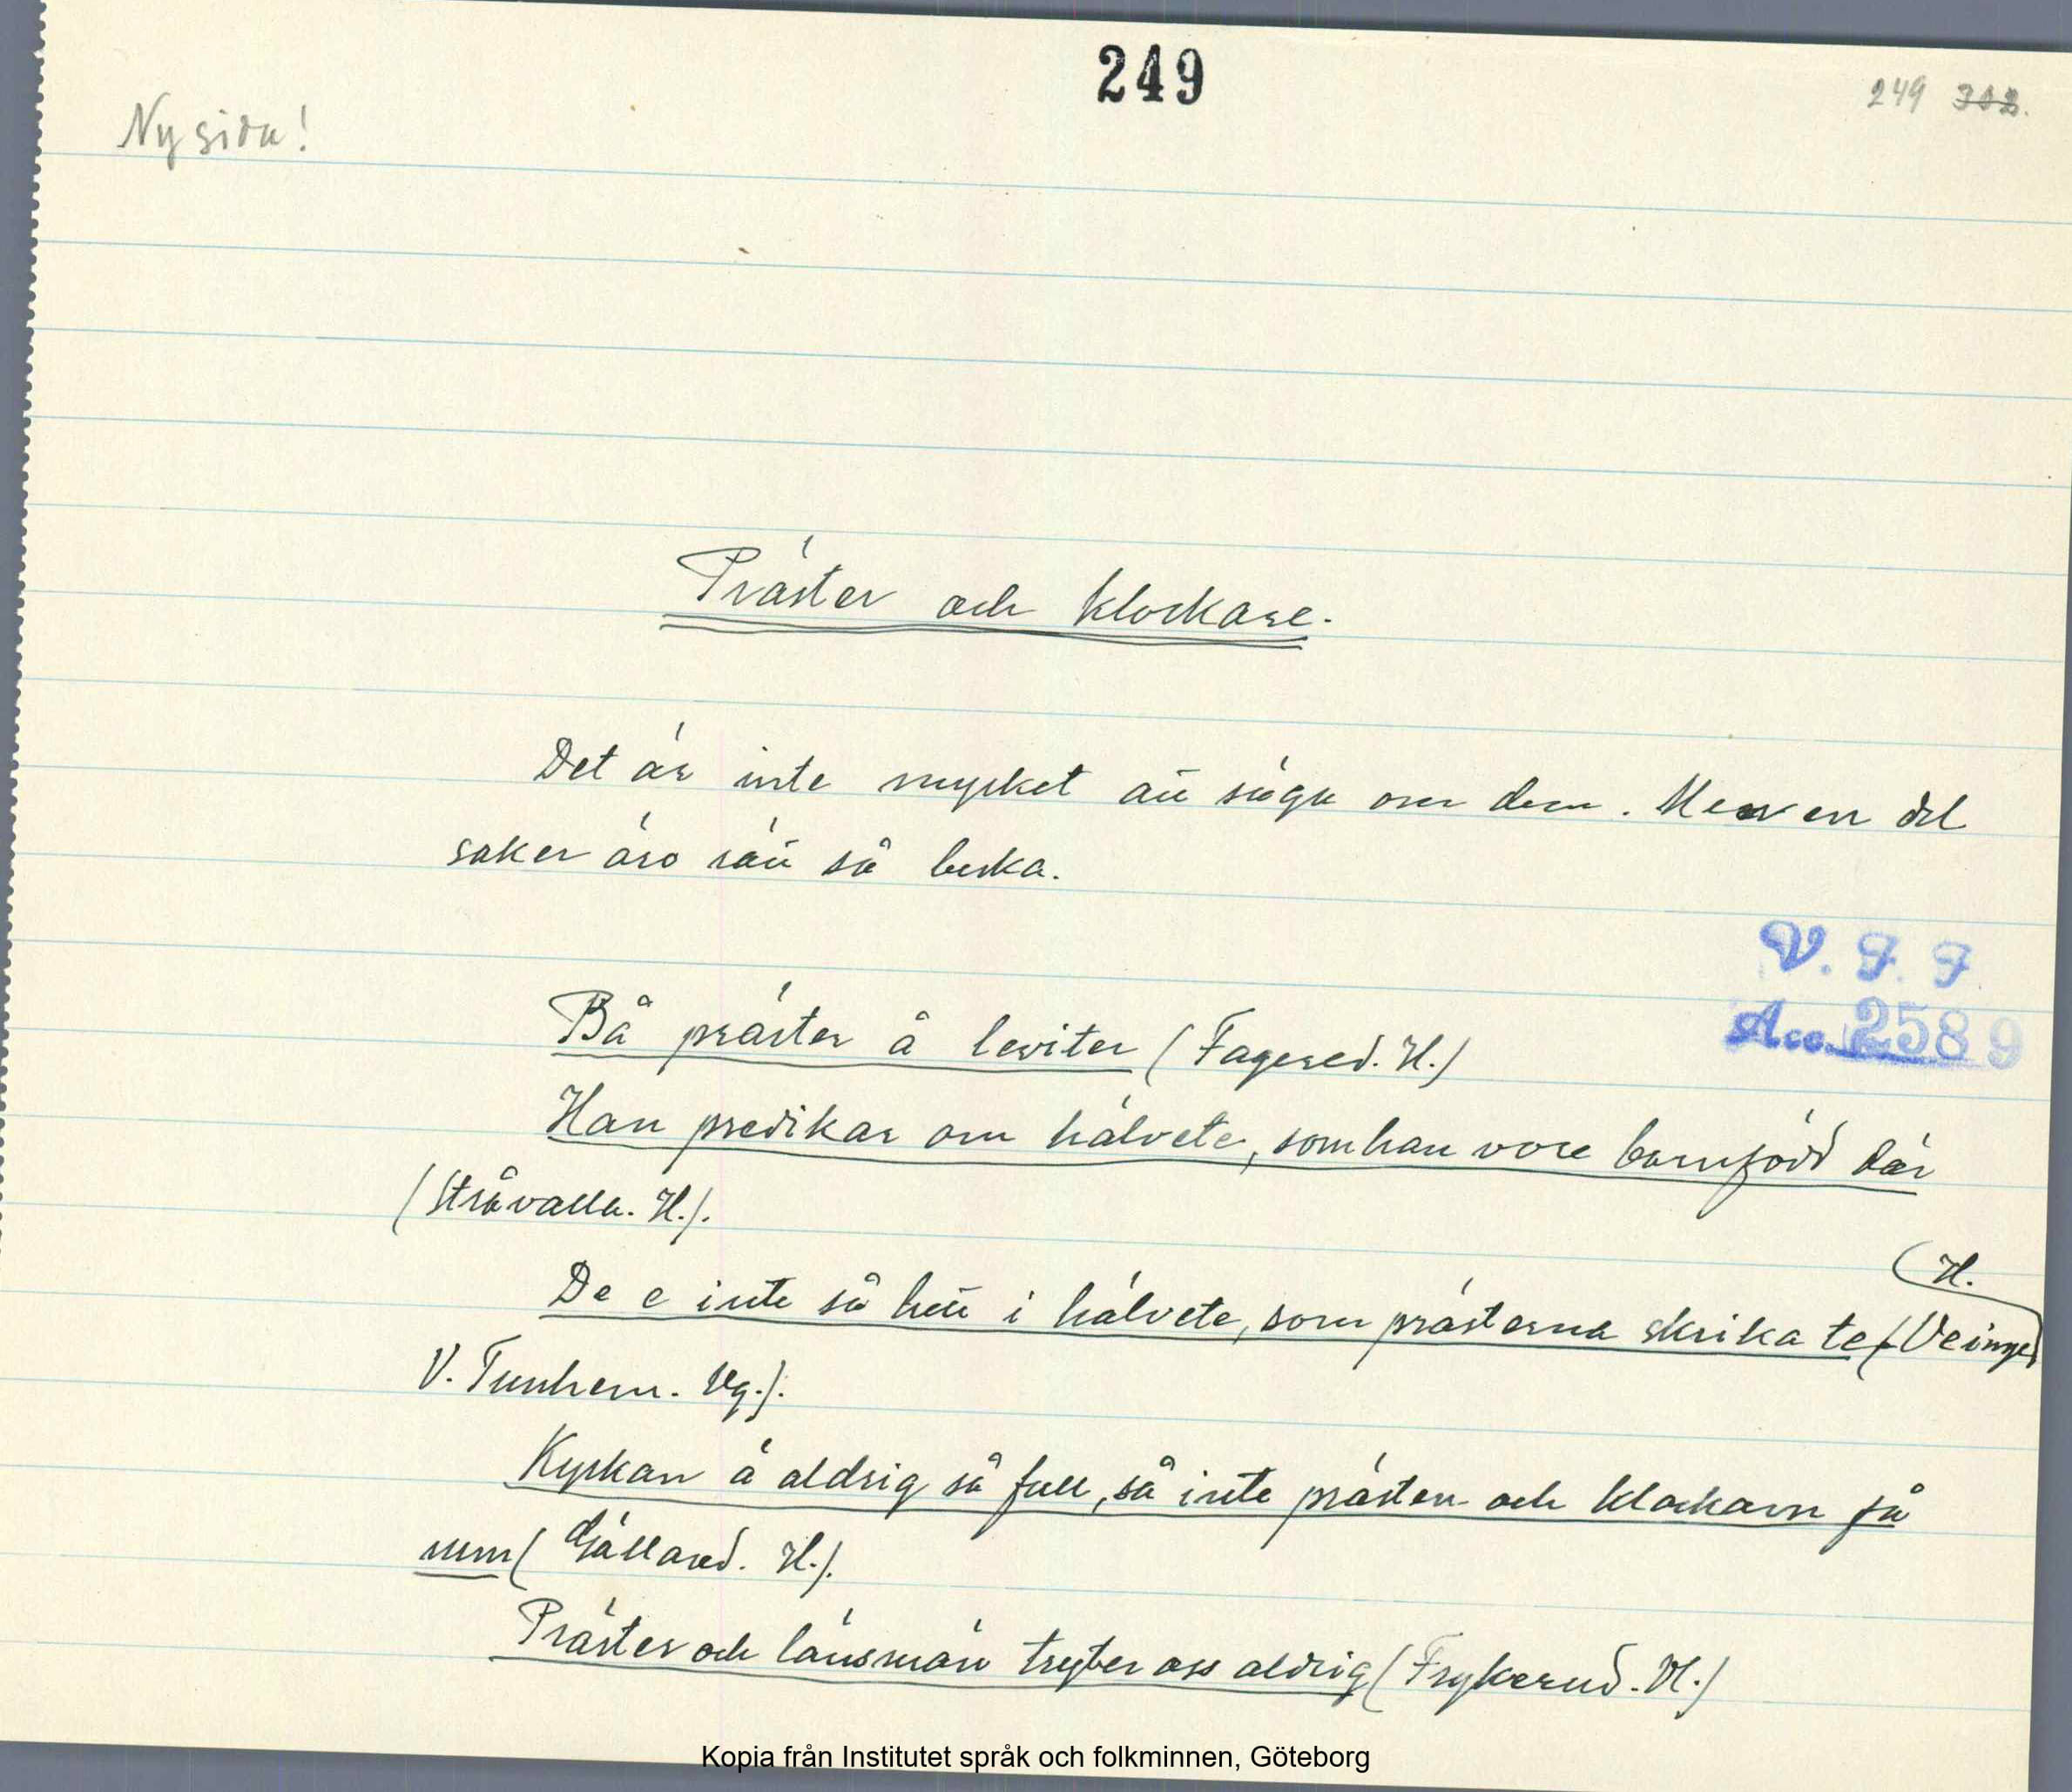 249
249 302.
Ny sida!
Präster och klockare.
Det är inte mycket att säga om dem. Men en del
saker äro rätt så beska.
V. F. F.
Acc. 2589
Bå präster å leviter (Fagered. H.)
Han predikar om hälvete, som han vore barnfödd där
(Stråvalla. H.).
H.
De e inte så hett i hälvete, som prästerna skrika te (Veinge
V. Tunhem. Vg.).
Kyrkan ä aldrig så full, så inte prästen och klockarn få
rum (Gällared. H.).
Präster och länsmän tryter oss aldrig (Frykerud. Vl.)
Kopia från Institutet språk och folkminnen, Göteborg